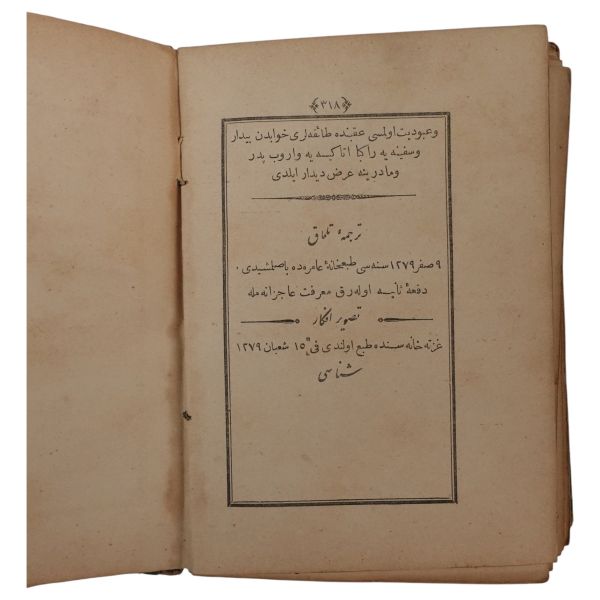 ﴿٣١٨﴾
وعبوديت اولمسى عقبنده طائفه‌لرى خوابدن بيدار
وسفينه يه راكبا اتاكيه يه واروب پدر
ومادرينه عرض ديدار ايلدى
ترجمهٔ تلماق
٩ صفر ١٢٧٩ سنه سى طبعخانهٔ عامره ده باصلمشيدى ٠
دفعهٔ ثانيه اوله رق معرفت عاجزانه مله
تصوير افكار
غزته خانه سنده طبع اولندى فى ١٥ شعبان ١٢٧٩
شناسى